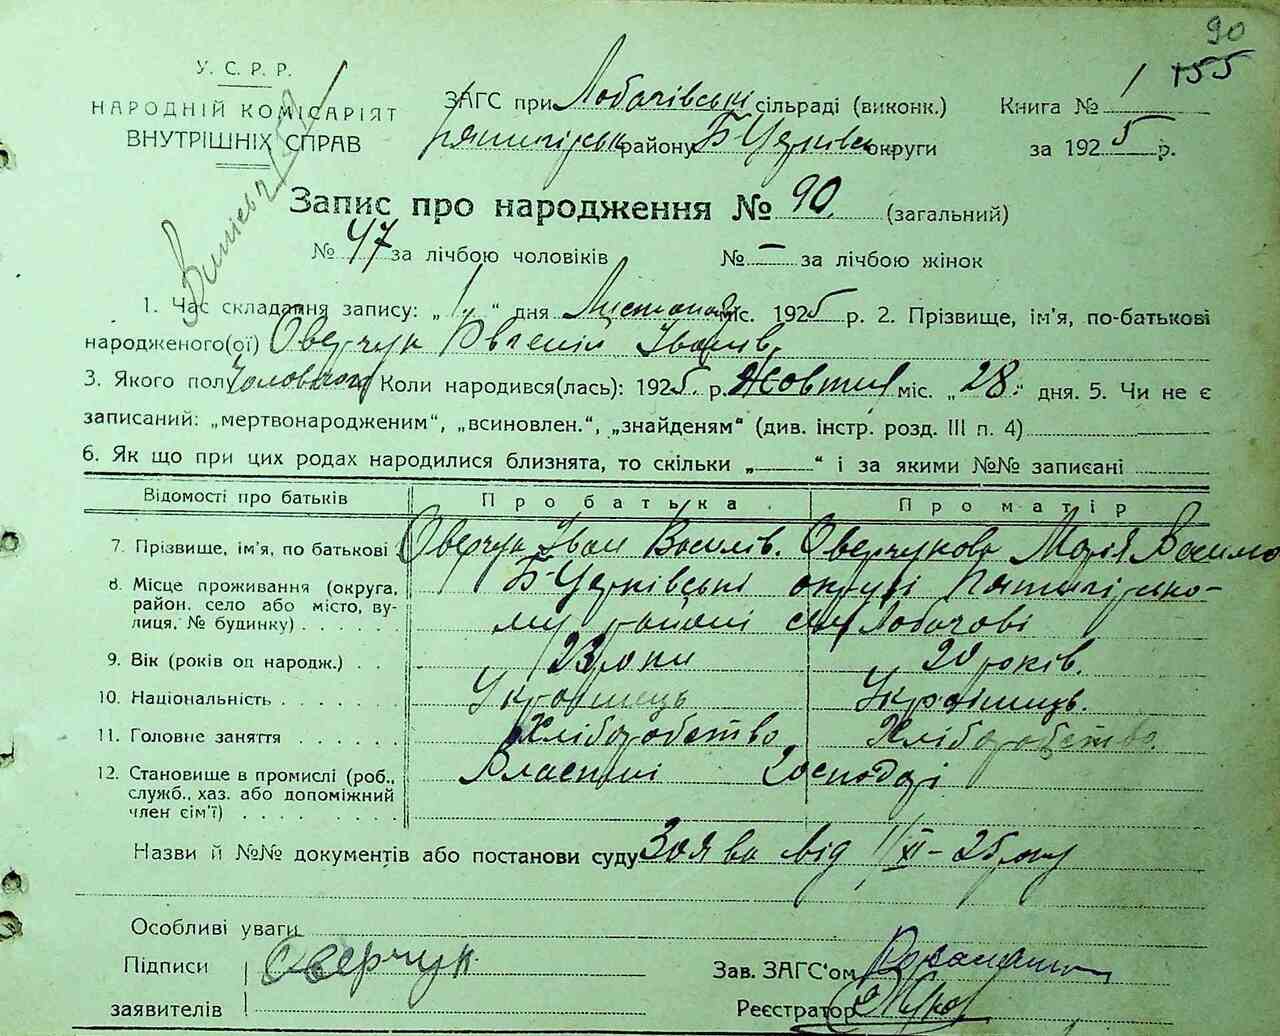 90
155
У. С. Р. Р.
НАРОДНІЙ КОМІСАРІЯТ
ВНУТРІШНІХ СПРАВ
ЗАГС при Лобачівські сільраді (виконк.)
Пятигірськ району Б-Церківськ округи
Книга № 1
за 1925 р.
Запис про народження № 90 (загальний)
№ 47 за лічбою чоловіків № – за лічбою жінок
1. Час складання запису: „1" дня Листопада міс. 1925 р. 2. Прізвище, ім'я, по-батькові
народженого(ої) Оверчук Євгеній Іванів.
3. Якого полу Чоловічого Коли народився(лась): 1925 р. Жовтня міс. „28" дня. 5. Чи не є
записаний: „мертвонародженим", „всиновлен.", „знайденям" (див. інстр. розд. III п. 4)
6. Як що при цих родах народилися близнята, то скільки „ " і за якими №№ записані
Відомості про батьків Про батька Про матір
7. Прізвище, ім'я, по батькові Оверчук Іван Василів. Оверчукова Марія Василів
8. Місце проживання (округа, Б-Церківські окрузі Пятигірсько-
район, село або місто, ву-
лиця, № будинку) му районі с. Лобачові
9. Вік (років од народж.) 23 роки 20 років.
10. Національність Українець Українець.
11. Головне заняття Хліборобство Хліборобство.
12. Становище в промислі (роб., Властині Господарі
служб., хаз. або допоміжний
член сім'ї)
Назви й №№ документів або постанови суду Заява від 1/XI-25 року
Особливі уваги
Підписи Оверчук
заявителів
Зав. ЗАГС'ом
Реєстратор